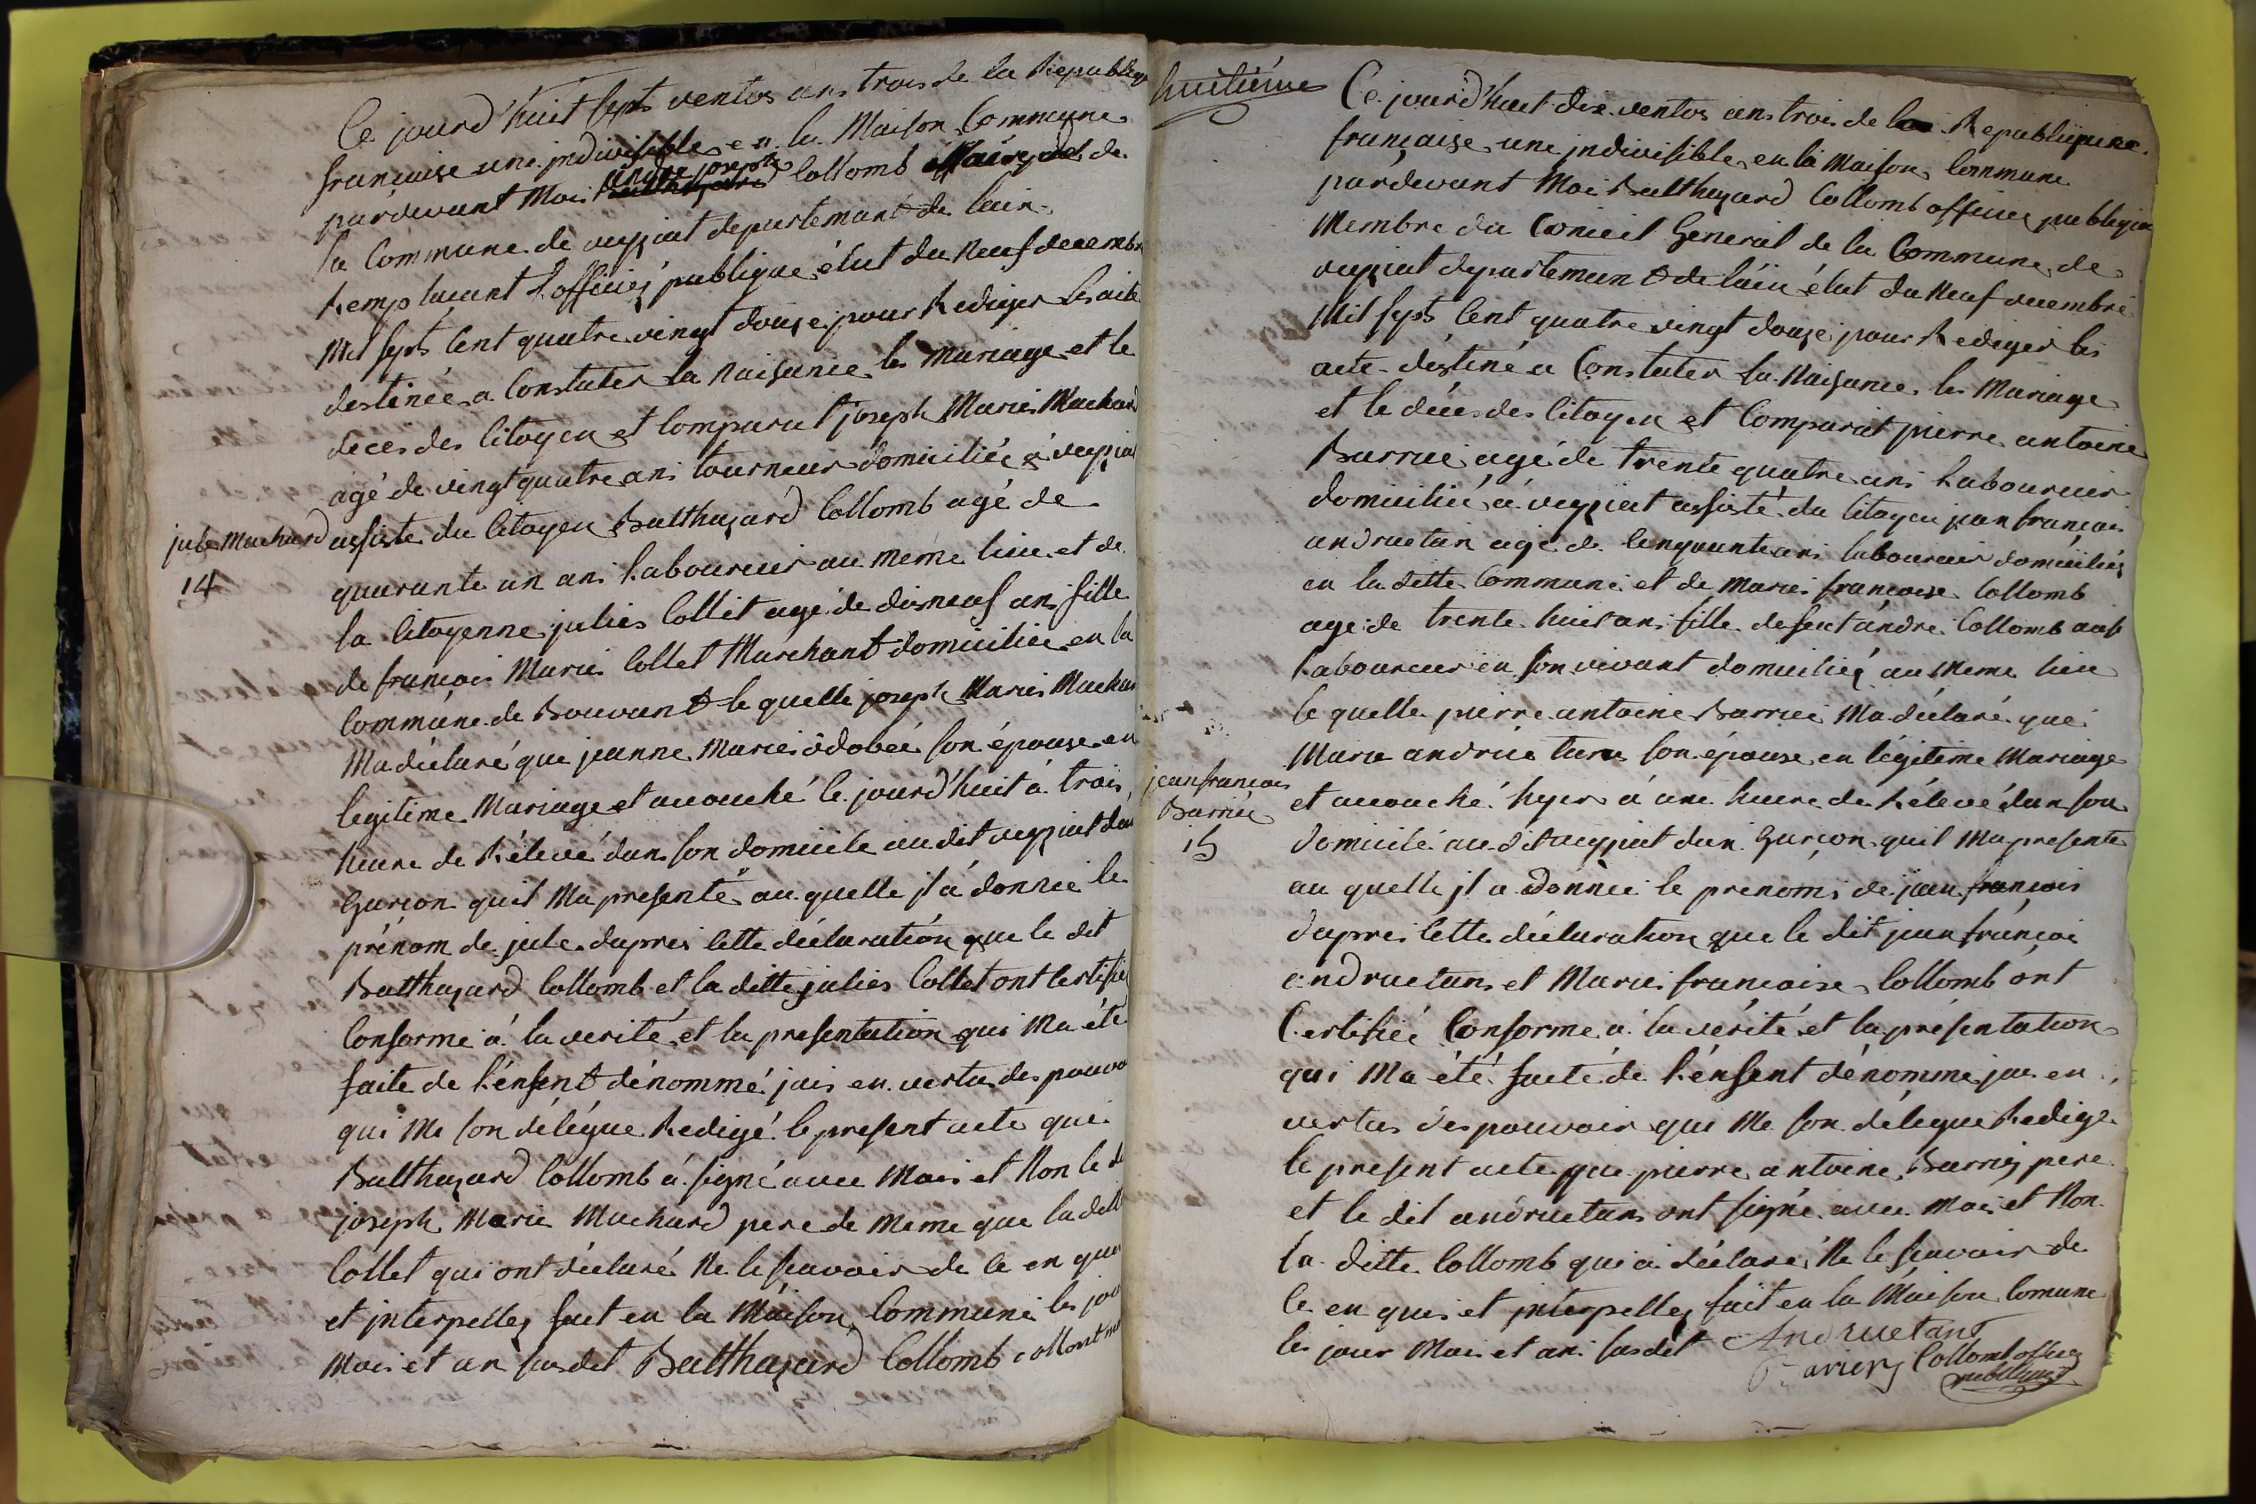 Ce jourd'huit sept ventos ans trois de la Republiq
francaise une indivisible en la Maison Commune
pardevant Moi andre joseph Collomb Maire de
la Commune de veyziat departemant de lain
Remplacant l'officié publique élut du Neuf decembre
Mil sept Cent quatre vingt douze pour Rediger les acte
destinée a Constater la Naisance les Mariage et le
deces des Citoyen et Comparut joseph Marie Machard
agé de vingt quatre ans tourneur domiciliée a veyziat
jule Machard
14
assiste du Citoyen Balthazard Collomb agé de
quarante un ans Laboureur au même lieu et de
la Citoyenne julies Collet agé de disneuf ans fille
de francois Marie Collet Marchant domiciliée en la
Commune de Bouvant le quelle joseph Marie Machar
Ma déclaré que jeanne Marie odobée son épouse en
legitime Mariage et acouché le jourd'huit à trois
heure de Rélevé dans son domicile au dit veyziat dun
Garcon quil Ma presenté au quelle jl à donnée le
prénom de jule dapres Cette déclaration que le dit
Balthazard Collomb et la ditte julies Collet ont Certifié
Conforme à la verité et la presentation qui Ma été
faite de l'énfent dénommé jais en vertus des pouvo
qui Me son délégue Redigé le present acte que
Balthazard Collomb à signé avec Mois et Non le d
joseph Marie Machard pere de Meme que la ditt
Collet qui ont déclaré Ne le scavoir de Ce en que
et interpelley fait en la Maison Commune les jou
Mois et an susdit Balthazard Collomb Collomb
huitiéme
Ce jourd'huit dix ventos ans trois de la Republique
française une indivisible en la Maison Commune
pardevant Moi Balthazard Collomb officier publique
Membre du Conseil General de la Commune de
veyziat departemant de láin élut du Neuf decembre
Mil sept Cent quatre vingt douze pour Rediger les
acte déstiné a Constater la Naisance les Mariage
et le déces des Citoyen et Comparut pierre antoine
Barrié agé de trente quatre ans Laboureur
domicilié à veyziat assisté du Citoyen jean françois
andruetan agé de Cenquante ans laboureur domiciliés
en la ditte Commune et de Marie françoise Collomb
age de trente huit ans fille de feut andré Collomb aussi
Laboureur en son vivant domicilié au Meme lieu
le quelle pierre antoine Barrié Ma déclaré que
Marie andrüe son épouse en légitime Mariage
jean francois
Barrié
15
et acouché hyer à une heure de Rélevé dans son
domicilé au dit veyziat dun Garcon quil Ma presente
au quelle jl a Donnée le prenoms de jean francois
dapres Cette déclaration que le dit jean françoi
andruetans et Marie francoise Collomb ont
Certifiée Conforme à la vérité et la présentation
qui Ma été faeté de l'énfent dénommé jai en
vertus des pouvoir qui Me son délegue Redige
le present acte que pierre antoine Barrié pere
et le dit andruetans ont signé avec Mois et Non
la ditte Collomb qui à déclaré Ne le scavoir de
Ce en quis et jnterpelley fait en la Maison Comune
les jour Mois et ans susdit Andruetant
Collomb officié
publique